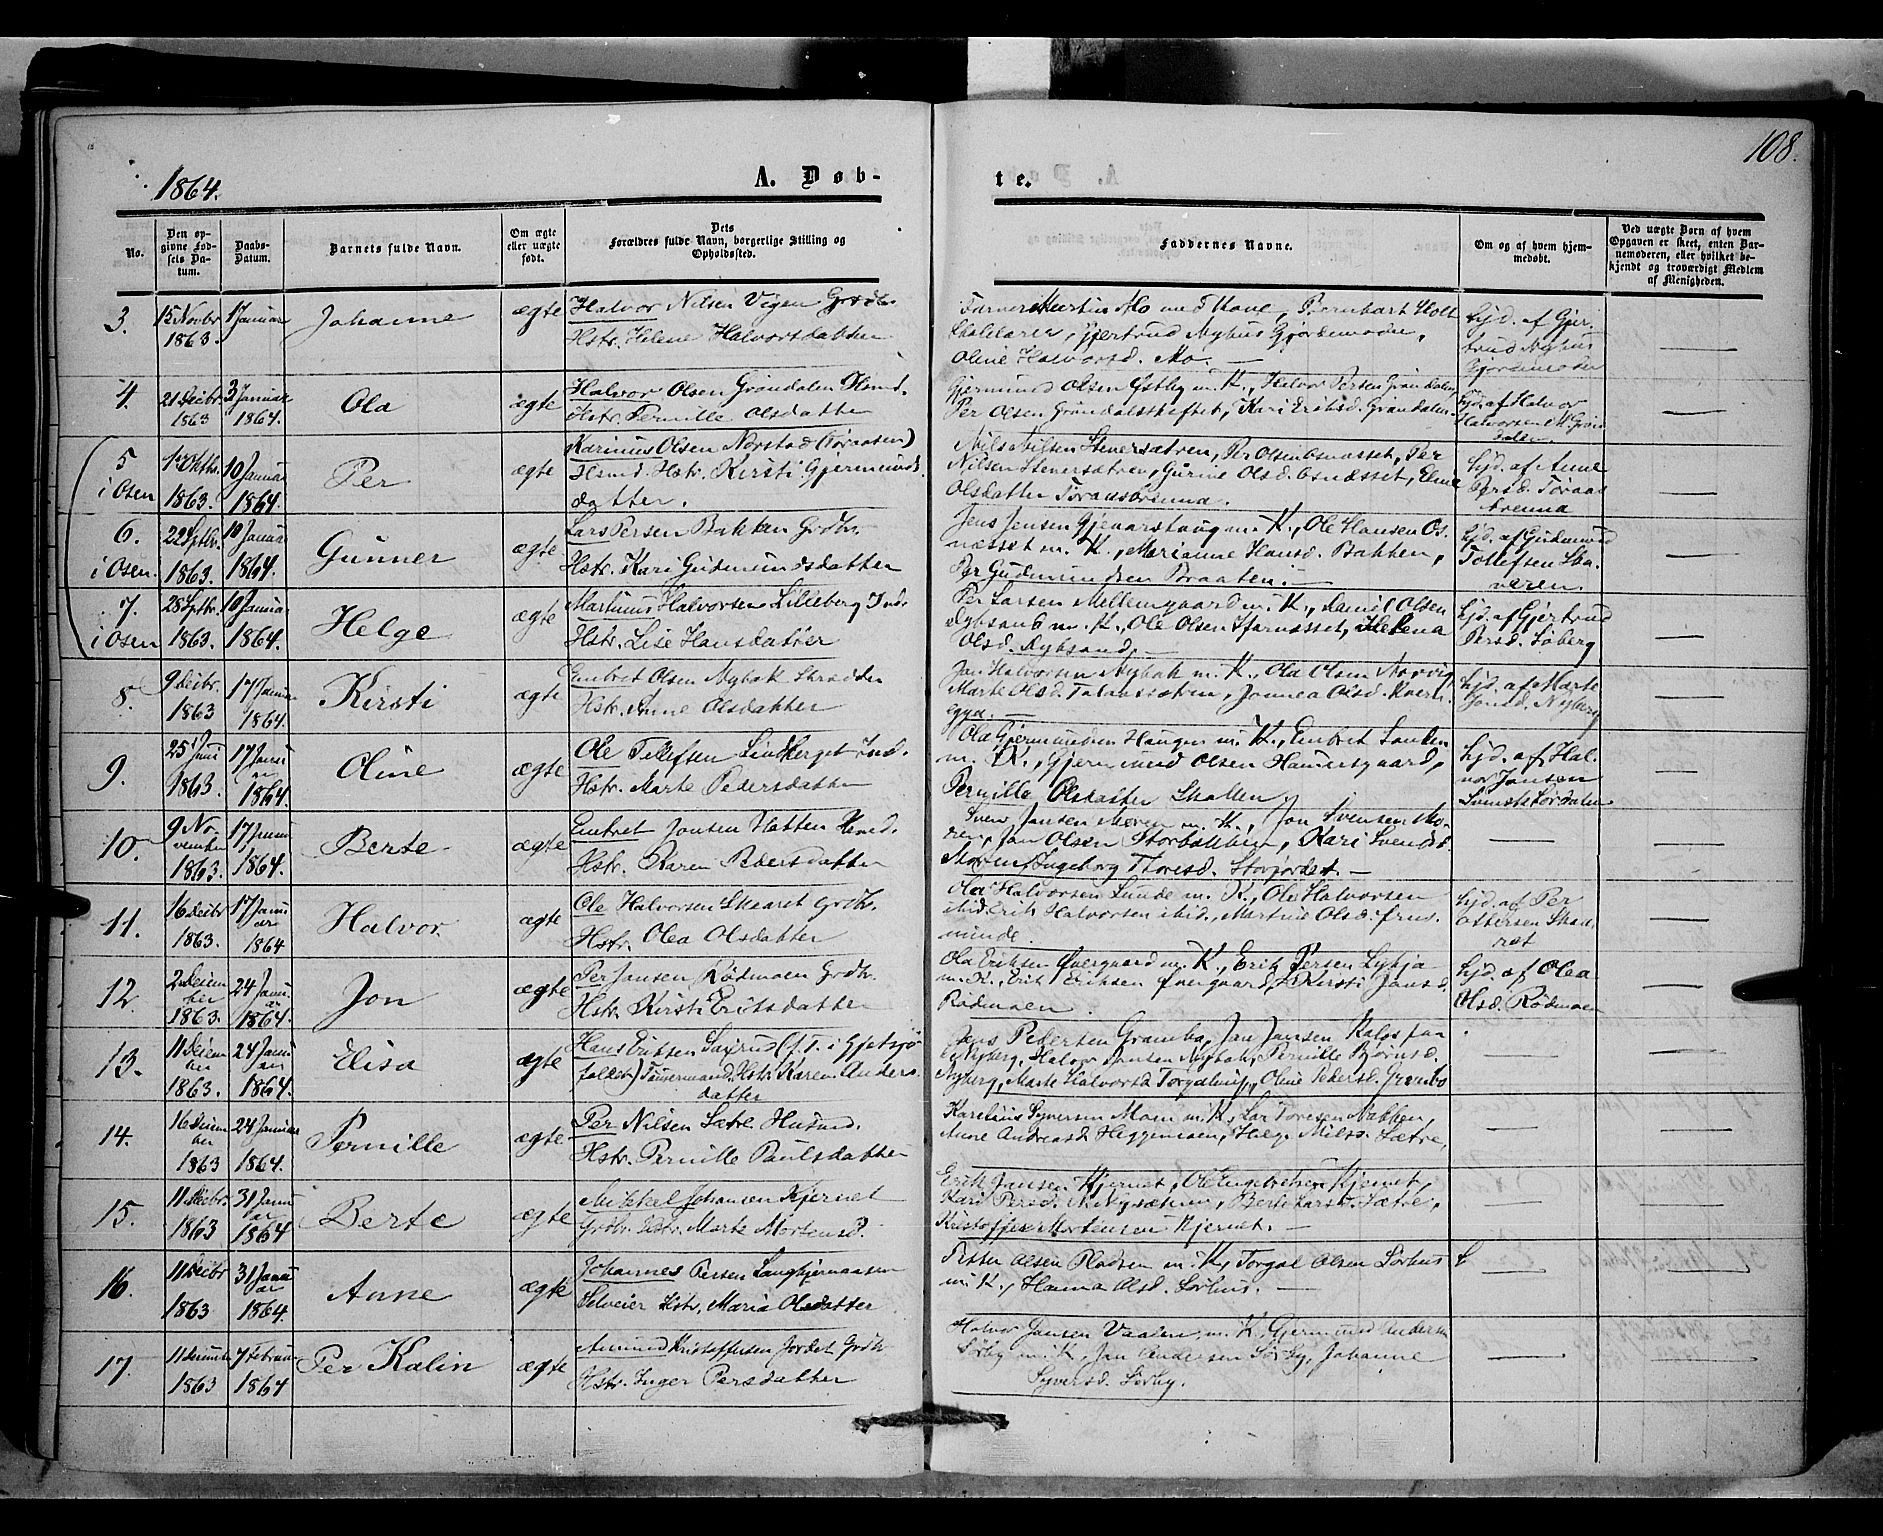 108.
1864.
A. Døb-
te.
No.
Den op-
givne Fød-
sels Da-
tum.
Daabs-
Datum.
Barnets fulde Navn.
Om ægte
eller uægte
født.
Dets
Forældres fulde Navn, borgerlige Stilling og
Opholdssted.
Faddernes Navne.
Om og af hvem hjem-
medøbt.
Ved uægte Børn af hvem
Opgaven er skeet, enten Bar-
nemoderen, eller hvilket be-
kjendt og troværdigt Medlem
af Menigheden.
3.
15 Novbr
1863.
1 Januar
Johanne
ægte
Halvor Nilsen Vigen Grdbr.
Hstr. Helene Halvorsdatter
Martin Mo med Kone, Bernhart Holt
Gjertrud Nyhus Gjordemoder,
Oline Halvorsd. Mo. —
Hjd. af Gjer-
trud Nyhus
Gjordemoder
4.
21 Decbr.
1863
3 Januar
1864.
Ola
ægte
Halvor Olsen Grøndalen Hsmd.
Hstr. Pernille Olsdatter
Gjermund Olsen Østby m. K., Halvor Persen Grøndalen,
Per Olsen Grøndalskiftet, Kari Eriksd. Grøndalen.
Hjd. af Halvor
Halvorsen Grøn-
dalen
5
i Osen
1863.
10 Januar
1864.
Per
ægte
Karinus Olsen Norstad (Toraasen)
Hsmd. Hstr. Kirsti Gjermunds-
datter.
Nils Nilsen Stenersætren, Per Olsen Osnæsset, Per
Nilsen Stenersætren, Gurine Olsd. Osnæsset, Eline
Olsdatter
Hjd. af Anne
Persd. Toraas
6.
i Osen.
22 Septbr.
1863.
10 Januar
1864.
Gunner
ægte
Lars Persen Bakken Grdbr.
Hstr. Kari Gudmundsdatter
Jens Jensen m. K., Ole Hansen Os-
næsset m. K., Marianne Hansd. Bakken,
Per Gudmundsen Braaten. —
Hjd. af Gudmund
Tollefsen Ska-
veren.
7.
i Osen
28 Septbr.
1863.
10 Januar
1864.
Helge
ægte
Martinus Halvorsen Lilleberg Inds.
Hstr. Lise Hansdatter
Per Larsen Mellemgaard m. K., Daniel Olsen
Nybsand m. K., Ole Olsen Helena
Olsd. Nybsand. —
Hjd. af Gjertrud
Persd. Søberg
8.
9 Decbr.
1863
17 Januar
1864.
Kirsti
ægte
Embret Olsen Nybak Skrædder
Hstr. Anne Olsdatter
Jan Halvorsen Nybak m. K., Ola Olsen
Marte Olsd. Jonnea Olsd. Kvern-
eggen. —
Hjd. af Marte
Jonsd. Nyberg
9.
25 Juni
1863.
17 Janu
ar
1864.
Oline
ægte
Ole Tollefsen Lindberget Inds.
Hstr. Marte Pedersdatter
Ola Gjermundsen Haugen m. K., Embret Sanden
m. K., Gjermund Olsen Hammersgaard,
Pernille Olsdatter Skallen
Hjd. af Hal-
vor Jansen
10.
9 No-
vember
1863.
17 Janu
1864.
Berte
ægte
Embret Jonsen Hatten Hsmd.
Hstr. Karen Pedersdatter
Svend Jansen Moren m. K., Jon Svensen Mo-
ren, Jan Olsen Storbakken, Kari Svensd.
Moren, Ingeborg Thoresd. Storjordet. —
11.
16 Decbr
1863.
17 Janu
ar
1864
Halvor
ægte
Ole Halvorsen Skaaret Grdbr.
Hstr. Olea Olsdatter
Ola Halvorsen Lunde m. K., Ole Halvorsen
ibid. Erik Halvorsen ibid., Martine Olsd.
munde.
Hjd. af Per
Ottersen Skaa-
ret
12.
2 Decem
ber
1863.
24 Janu
ar
1864.
Jon
ægte
Per Jansen Rødmoen Grdbr.
Hstr. Kirsti Eriksdatter
Ola Eriksen Øvergaard m. K., Erik Persen Lybja
m. K., Erik Eriksen Øvergaard, Kirsti Jansd.
Rødmoen.
Hjd. af Olea
Olsd. Rødmoen
13.
11 Decem
ber
1863.
24 Janu
ar
1864.
Elisa
ægte
Hans Eriksen Saxrud (f. T. i Gjetsjø-
fallet) Tømmermand. Hstr. Karen Anders-
datter
Jens Pedersen Gramba, Jan Jansen
Nyberg, Halvor Jansen Nybak, Pernille Bjørnsd.
Nyberg, Marte Halvorsd. Oline Pedersd.
14.
16 Decem
ber
1863
24 Januar
1864.
Pernille
ægte
Per Nilsen Sætre Husmd.
Hstr. Pernille Paulsdatter
Karelius Syversen Moen m. K., Lars Toresen Nabben,
Anne Andreasd. Heggemoen, Helge Nilsd. Sætre,
15.
11 Decbr
1863
31 Janu
ar
1864
Berte
ægte
Mikkel Johansen Kjernet
Grdbr. Hstr. Marte Mortensd.
Erik Jansen Kjernet, Ole Engebretsen Kjernet,
Kari Persd. Nysætren, Berte Larsd. Sætre,
Kristoffer Mortensen Kjernet. —
16.
11 Decbr
1863
31 Janu
ar
1864
Anne
ægte
Johannes Persen Langkjernaasen
Selveier Hstr. Maria Olsdatter
Petter Olsen Pladsen m. K., Torgal Olsen Sørhus
m. K., Hanna Olsd. Sørhus. —
17.
11 Decembr
1863
7 Februar
1864
Per Kalin
ægte
Amund Kristoffersen Jordet Grdbr.
Hstr. Inger Persdatter
Halvor Jansen Vaalen m. K., Gjermund Andersen
Sørby m. K., Jan Andersen Sørby, Johanne
Syversd. Sørby.